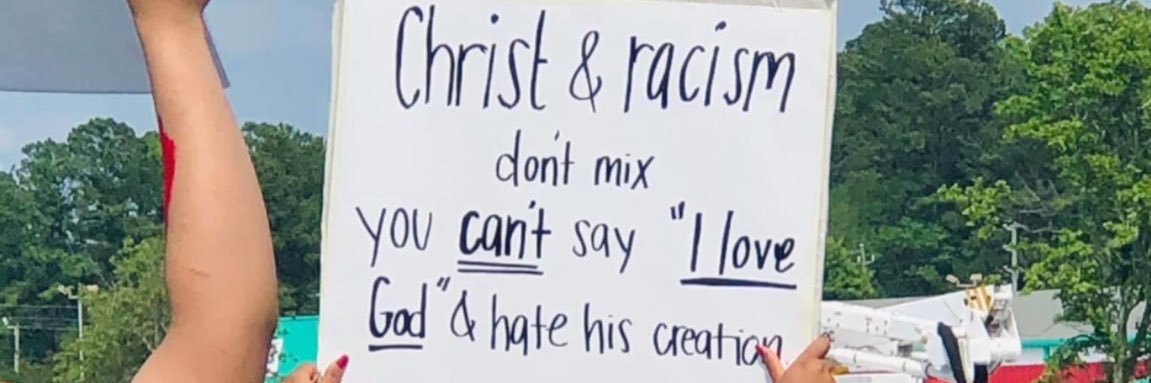 Christ & racism
don't mix
you can't say "I love
God" & hate his creation